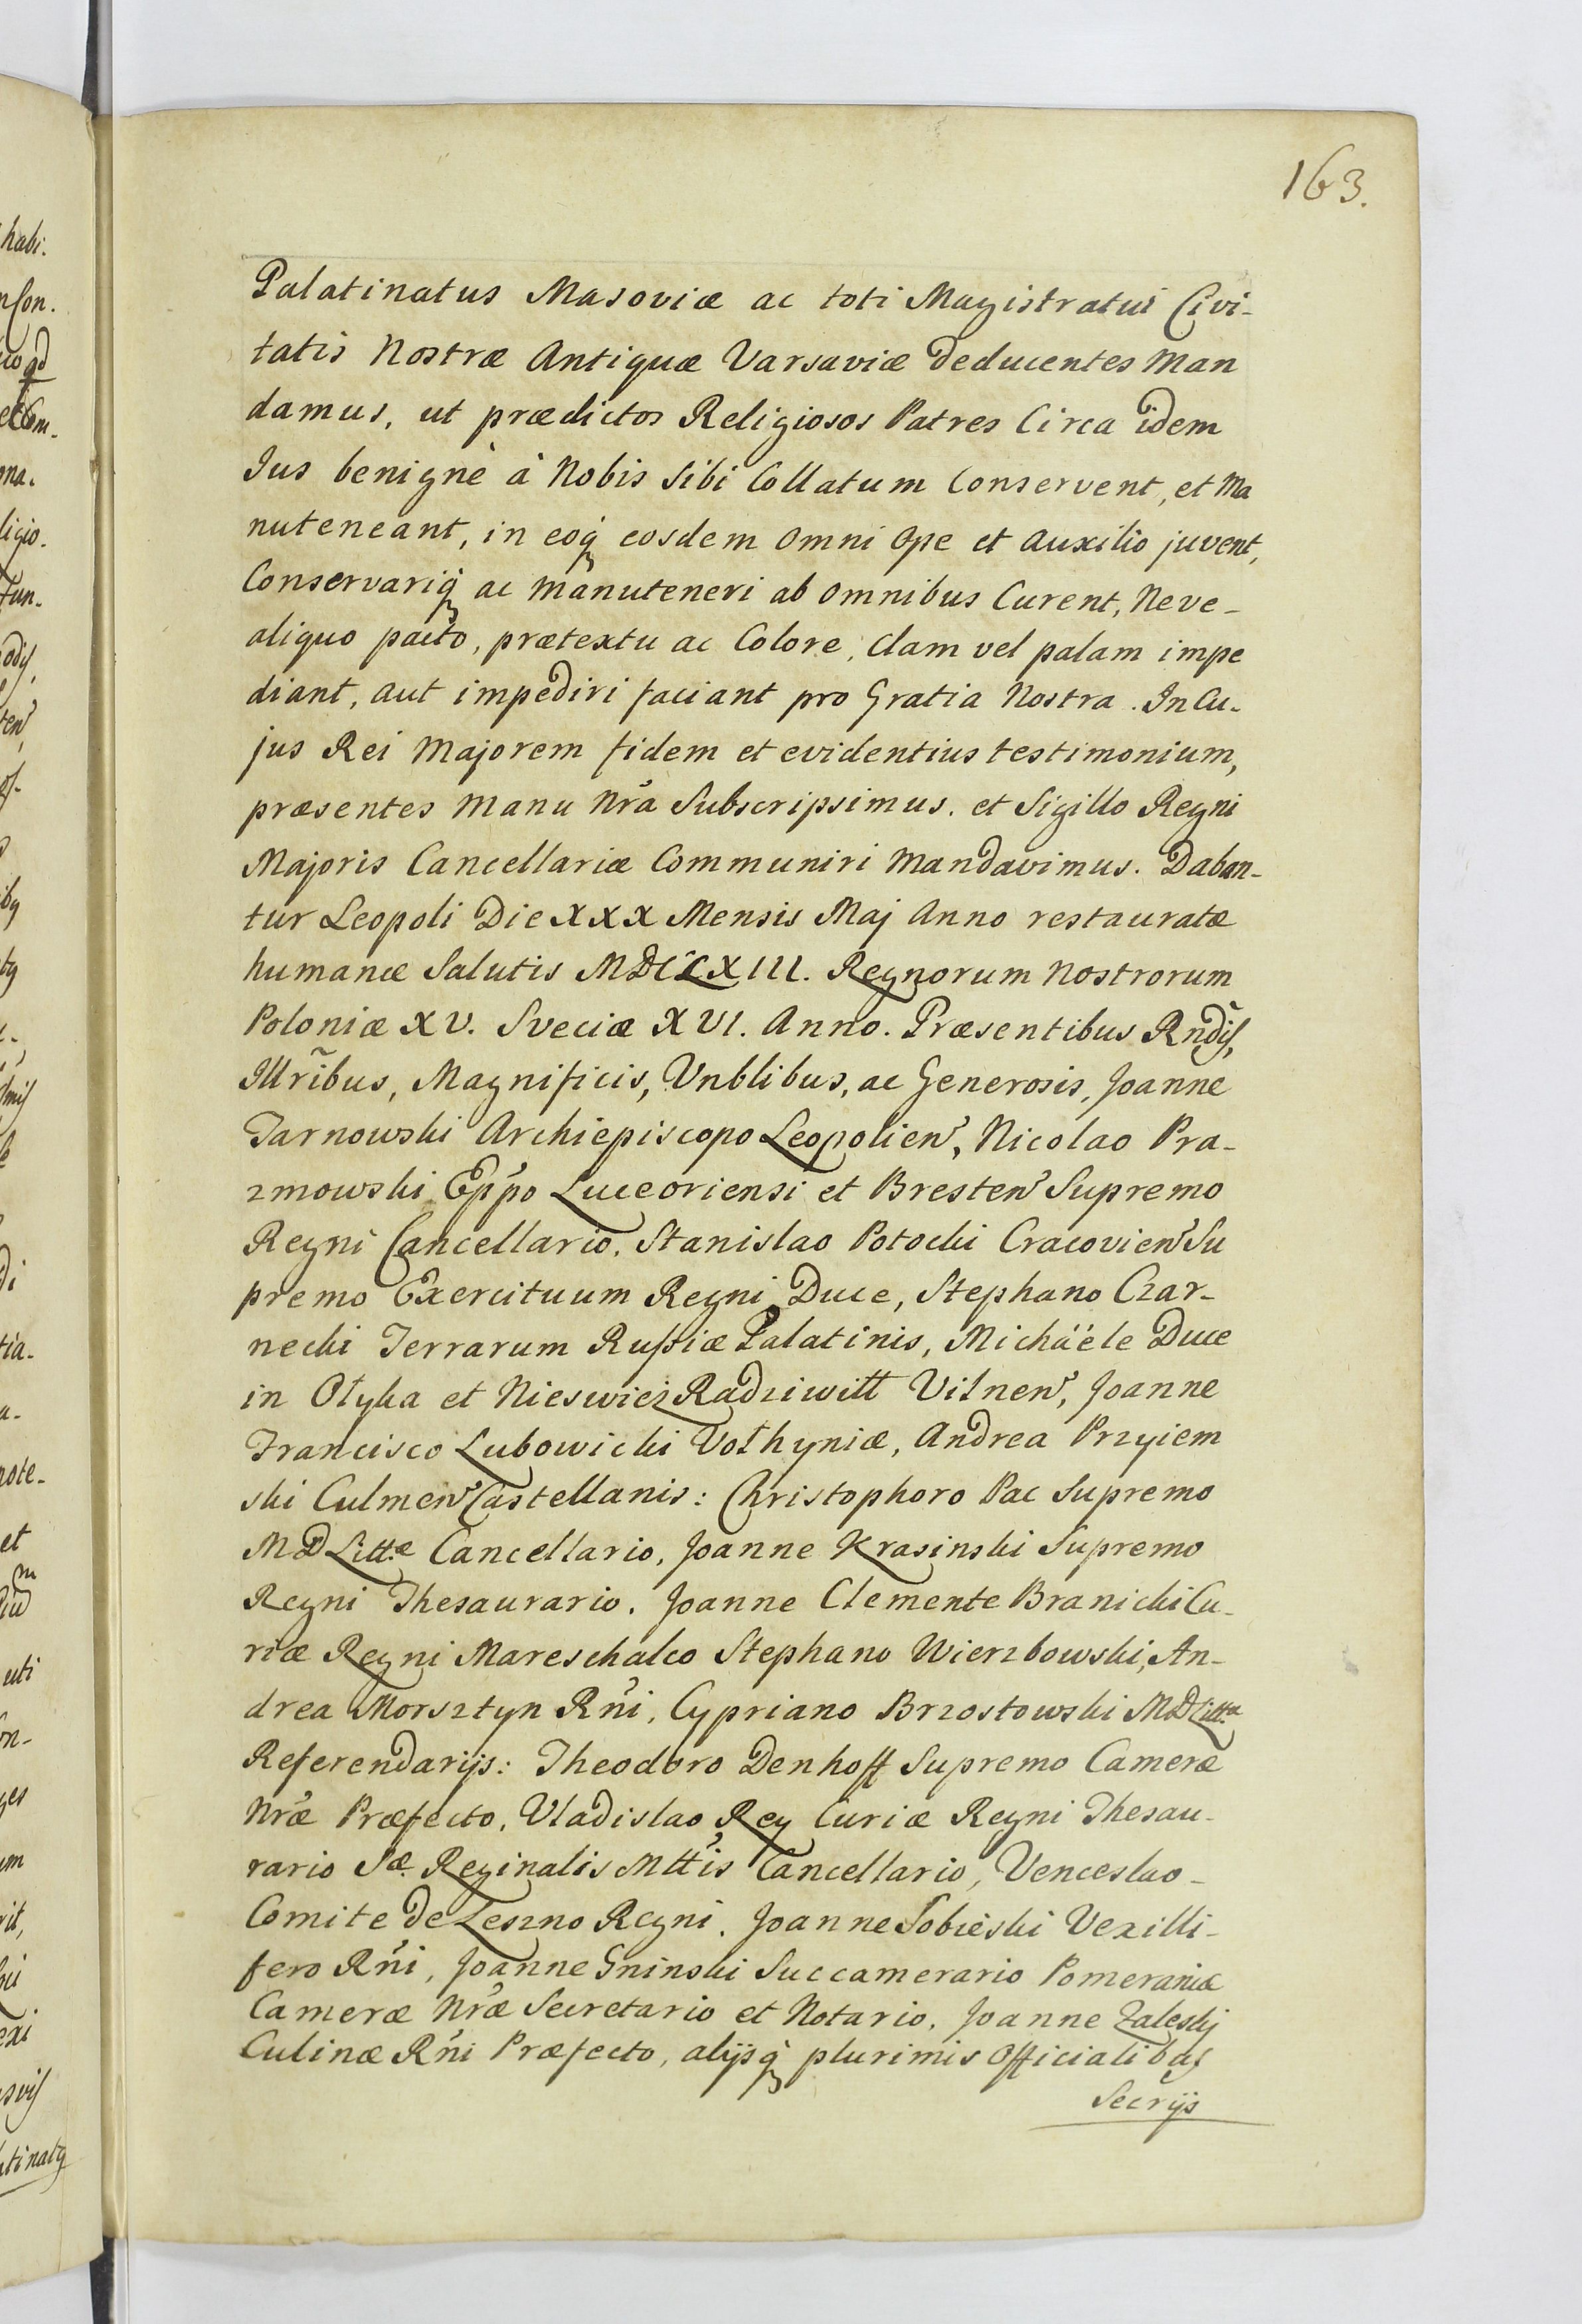 163.
Palatinatus Masoviæ ac toti Magistratui Civi-
tatis Nostræ Antiquæ Varsaviæ deducentes Man
damus, ut prædictos Religiosos Patres Circa idem
Jus benignè à Nobis sibi Collatum Conservent, et Ma
nuteneant, in eoq̀ eosdem omni ope et auxilio juvent,
Conservariq̀ ac manuteneri ab omnibus Curent, Neve-
aliquo pacto, prætextu ac Colore, Clam vel palam impe
diant, aut impediri faciant pro Gratia Nostra. In Cu-
jus Rei Majorem fidem et evidentius testimonium,
præsentes Manu Nrã Subscripsimus. et Sigillo Regni
Majoris Cancellariæ Communiri Mandavimus. Daban-
tur Leopoli Die XXX Mensis Maj Anno restauratæ
humanæ Salutis MDCLXIII. Regnorum Nostrorum
Poloniæ XV. Sveciæ XVI. Anno. Præsentibus Rndis,
Illribus, Magnificis, Vnblibus, ac Generosis, Joanne
Tarnowski Archiepiscopo Leopolien, Nicolao Pra-
zmowski Eppo Luceoriensi et Bresten Supremo
Regni Cancellario, Stanislao Potocki Cracovien Su
premo Exercituum Regni Duce, Stephano Czar-
necki Terrarum Russiæ Palatinis, Michäéle Duce
in Ołyka et Nieswiez Radziwiłł Vilnen, Joanne
Francisco Lubowicki Vołhyniæ, Andrea Przyiem
ski Culmen Castellanis: Christophoro Pac Supremo
MD Littæ Cancellario, Joanne Krasinski Supremo
Regni Thesaurario. Joanne Clemente Branicki Cu-
riæ Regni Mareschalco Stephano Wierzbowski, An-
drea Morsztyn Rni, Cypriano Brzostowski MD Littæ
Referendarijs: Theodoro Denhoff Supremo Cameræ
Nræ Præfecto, Vladislao Rey Curiæ Regni Thesau-
rario Sæ Reginalis Mttis Cancellario, Venceslao-
Comite de Leszno Regni, Joanne Sobieski Vexilli-
fero Rni, Joanne Gninski Succamerario Pomeraniæ
Cameræ Nræ Secretario et Notario, Joanne Zaleskj
Culinæ Rni Præfecto, alijsq̀ plurimis Officialibus
Secrijs